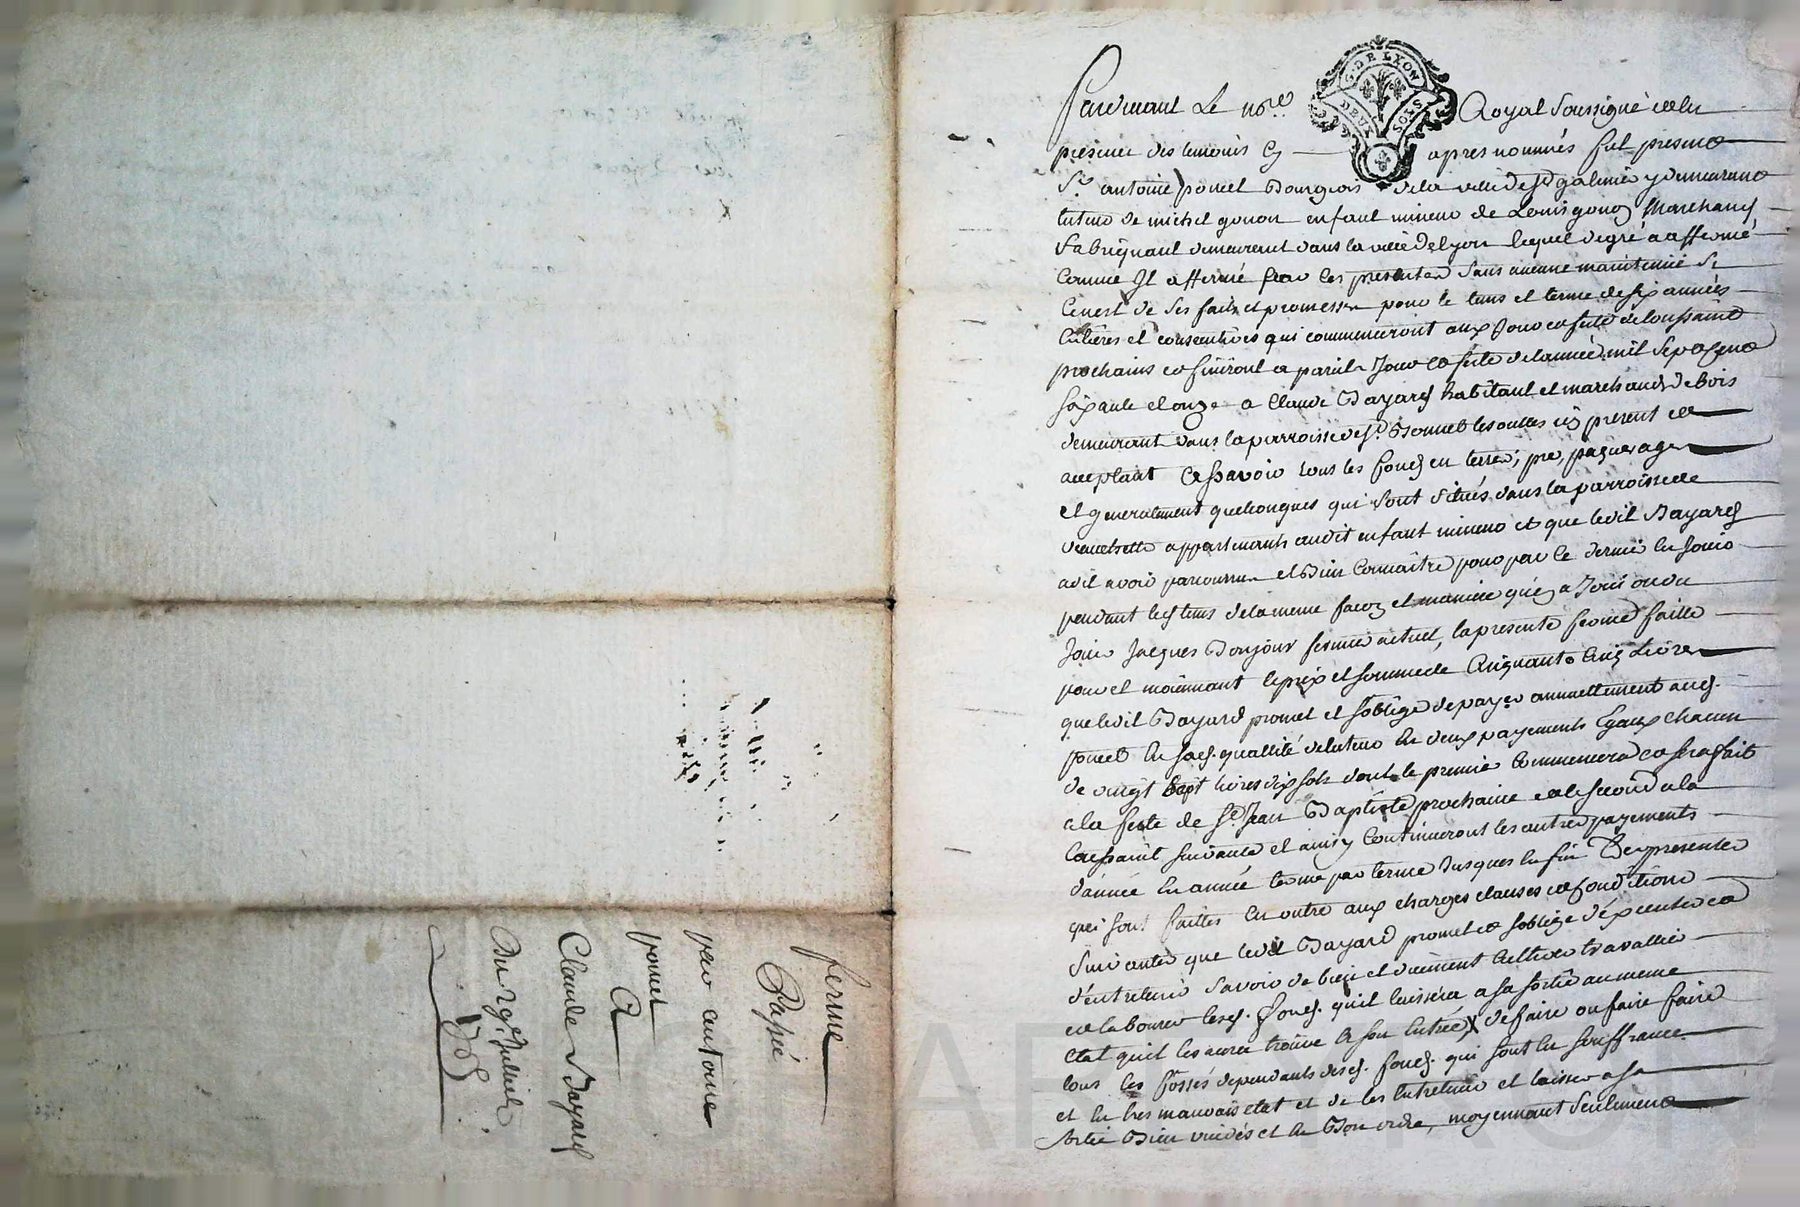 ferme
Passée
par antoine
poncet
A
Claude Bayard
Du 29e Juillet
1765
G. DE LYON
DEUX SOLS
Pardevant Le nore Royal Soussigné et en
presence des temoins cy apres nommés fut present
Sr antoine poncet Bourgeois de la ville de St galmier y demeurant
tuteur de michel gonon enfant mineur de Louis gonon Marchand
fabriquant demeurant dans la ville de lyon lequel de gré a affermé
comme Il afferme par les presentes Sans aucune maintenue Si
Cenest de Ses faits et promesses pour le tems et terme de six années
Entieres et consecutives qui commenceront aux Jour et feste de toussaint
prochains et finiront a pareils Jour et feste de lannée mil Sept Cent
soixante et onze a Claude Bayard habitant et marchand de Bois
demeurant dans la parroisse de St Bonnet les oulles icy present et
acceptant Cest Savoir tous les fonds en terres, pre, paquerages
et generalement quelconques qui Sont Situés dans la parroisse de
veauchette appartenants audit enfant mineur et que ledit Bayard
a dit avoir parcourus et Bien Connaître pour par ce dernier En Jouir
pendant led tems de la meme facon et maniere qu'en a Joui ou du
Jouir Jacques Bonjour fermier actuel, la presente ferme faitte
pour et moiennant le prix et somme de Cinquante Cinq Livres
que ledit Bayard promet et s'oblige de payer annuellement aud.
poncet En sad. quallité de tuteur En deux payements Egaux chacun
de vingt Sept livres dix sols dont le premier Commencera et sera fait
a la feste de St Jean Baptiste prochaine et le second a la
toussaint suivante et ainsy Continueront les autres payements
d'année En année terme par terme Jusques En fin Des presentes
qui sont faittes En outre aux charges clauses et Conditions
Suivantes que ledit Bayard promet et soblige d'éxecuter et
d'entretenir Savoir de bien et duement Cultiver travallier
et labourer lesd. fonds. quil laissera a sa sortie au meme
Etat quil les aura trouvé a son Entrée, de faire ou faire faire
tous les fossés dependants desd. fonds. qui sont En souffrance
et En tres mauvais etat et de les Entretenir et laisser a sa
sortie Bien vuidés et En Bon ordre, moyennant Seulement